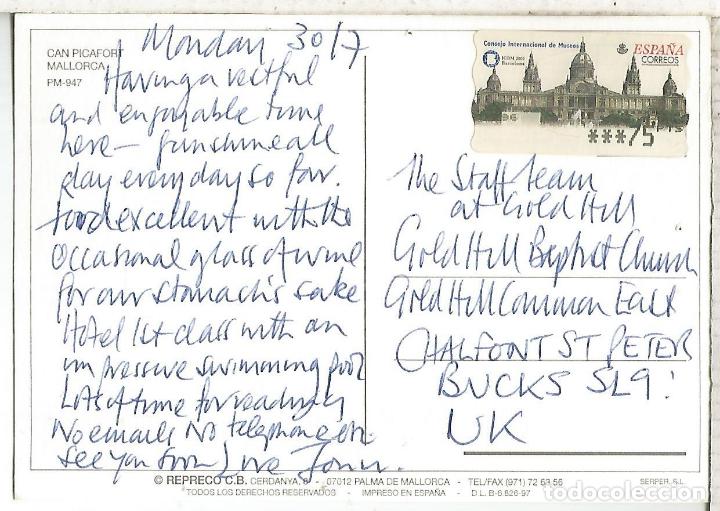 CAN PICAFORT
MALLORCA
PM-947
Monday 30/7
Having a restful
and enjoyable time
here – sunshine all
day every day so far.
Food excellent with the
occasional glass of wine
for our stomach's sake
Hotel 1st class with an
impressive swimming pool
Lots of time for reading
No emails No telephone etc.
See you soon Love John.
Consejo Internacional de Museos
ICOM 2001
Barcelona
ESPAÑA
CORREOS
***75
The Staff Team
at Gold Hill
Gold Hill Baptist Church
Gold Hill Common East
CHALFONT ST PETER
BUCKS SL9
UK
© REPRECO C.B. CERDANYA, 6 - 07012 PALMA DE MALLORCA - TEL/FAX (971) 72 63 56 SERPER, S.L.
TODOS LOS DERECHOS RESERVADOS - IMPRESO EN ESPAÑA - D.L. B-6.826-97
todocoleccion